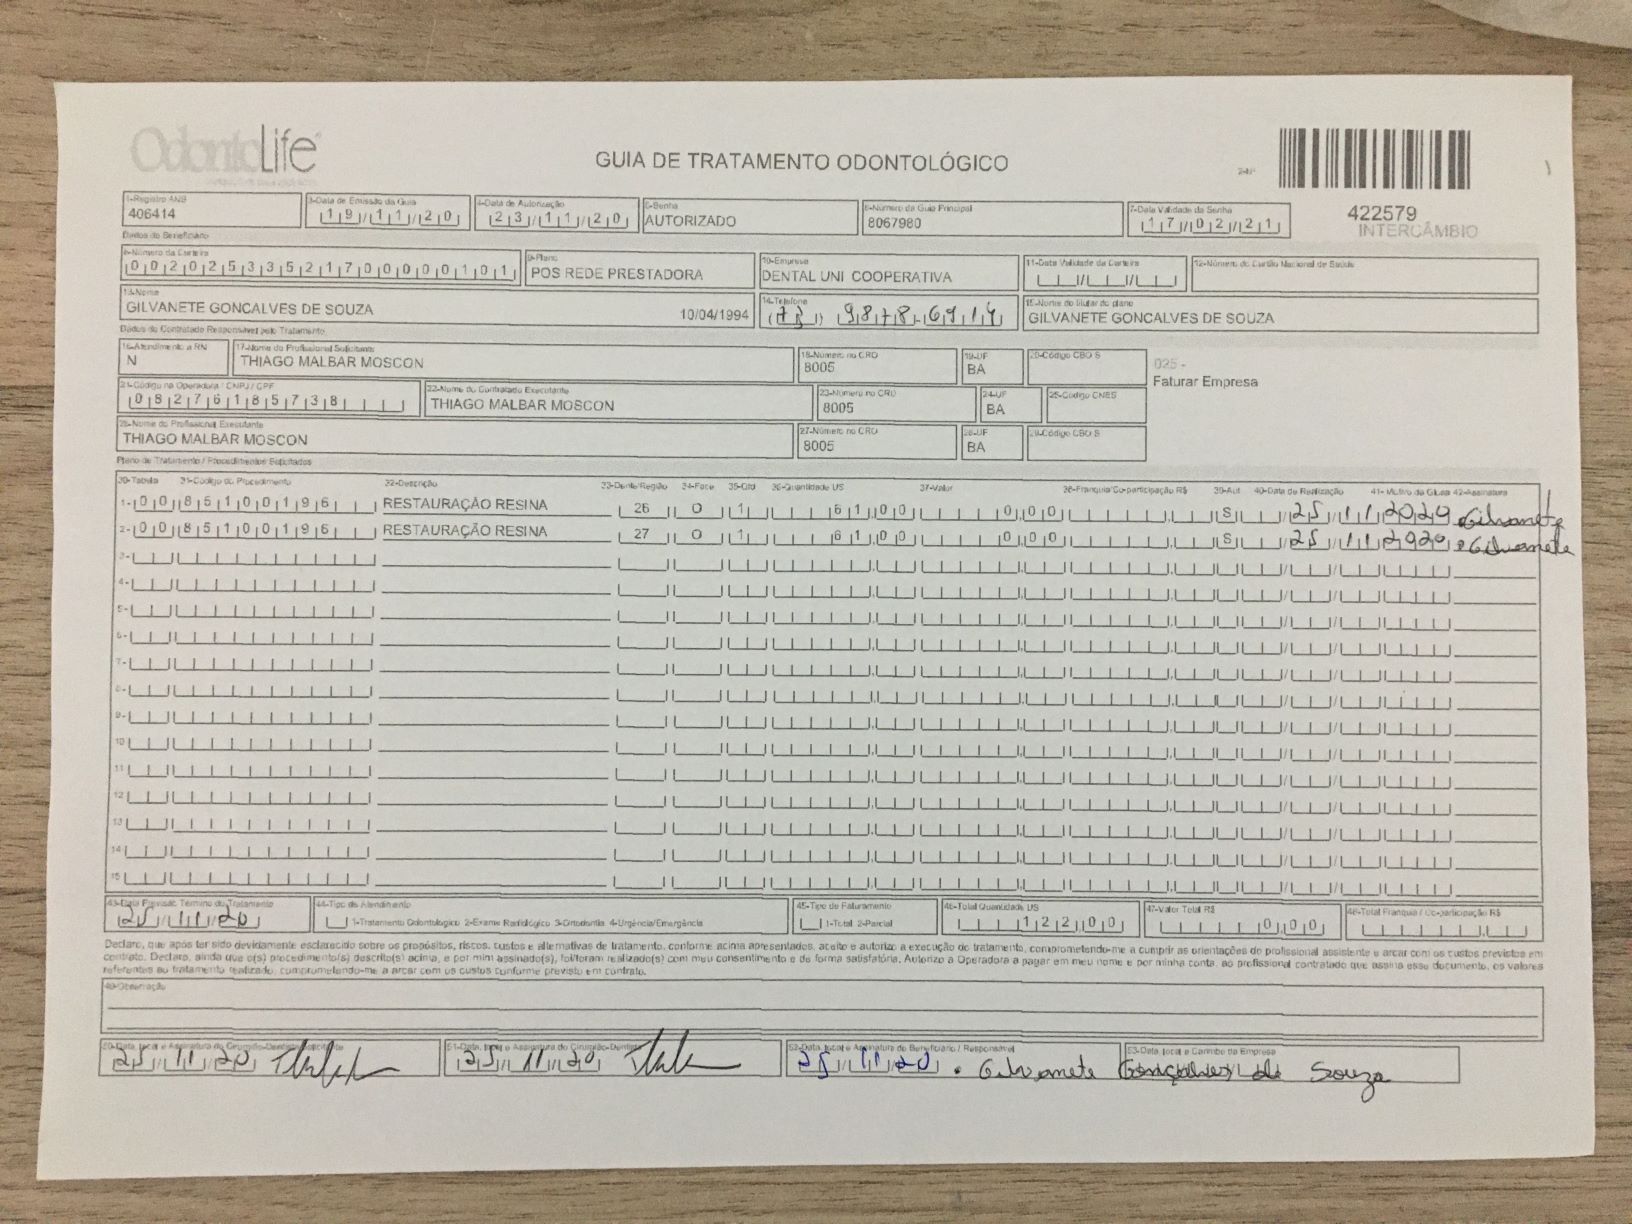 OdontoLife
GUIA DE TRATAMENTO ODONTOLÓGICO
2-Nº
1-Registro ANS
406414
3-Data de Emissão da Guia
19/11/20
4-Data de Autorização
23/11/20
5-Senha
AUTORIZADO
6-Número da Guia Principal
8067980
7-Data Validade da Senha
17/02/21
422579
INTERCÂMBIO
Dados do Beneficiário
8-Número da Carteira
00202533521700000101
9-Plano
POS REDE PRESTADORA
10-Empresa
DENTAL UNI COOPERATIVA
11-Data Validade da Carteira
12-Número do Cartão Nacional de Saúde
13-Nome
GILVANETE GONCALVES DE SOUZA 10/04/1994
14-Telefone
15-Nome do titular do plano
GILVANETE GONCALVES DE SOUZA
Dados do Contratado Responsável pelo Tratamento
16-Atendimento a RN
N
17-Nome do Profissional Solicitante
THIAGO MALBAR MOSCON
18-Número no CRO
8005
19-UF
BA
20-Código CBO S
025 -
Faturar Empresa
21-Código na Operadora / CNPJ / CPF
08276185738
22-Nome do Contratado Executante
THIAGO MALBAR MOSCON
23-Número no CRO
8005
24-UF
BA
25-Código CNES
26-Nome do Profissional Executante
THIAGO MALBAR MOSCON
27-Número no CRO
8005
28-UF
BA
29-Código CBO S
Plano de Tratamento / Procedimentos Solicitados
30-Tabela 31-Código do Procedimento 32-Descrição 33-Dente/Região 34-Face 35-Qtd 36-Quantidade US 37-Valor 38-Franquia/Co-participação R$ 39-Aut 40-Data de Realização 41-Motivo da Glosa 42-Assinatura
1- 00 85100196 RESTAURAÇÃO RESINA 26 O 1 61,00 0,00 S 25/11/2020 Gilvanete
2- 00 85100196 RESTAURAÇÃO RESINA 27 O 1 61,00 0,00 S 25/11/2020 Gilvanete
3-
4-
5-
6-
7-
8-
9-
10
11
12
13
14
15
43-Data Previsão Término do Tratamento
25/11/20
44-Tipo de Atendimento
1-Tratamento Odontológico 2-Exame Radiológico 3-Ortodontia 4-Urgência/Emergência
45-Tipo de Faturamento
1-Total 2-Parcial
46-Total Quantidade US
122,00
47-Valor Total R$
0,00
48-Total Franquia / Co-participação R$
Declaro, que após ter sido devidamente esclarecido sobre os propósitos, riscos, custos e alternativas de tratamento, conforme acima apresentados, aceito e autorizo a execução do tratamento, comprometendo-me a cumprir as orientações do profissional assistente e arcar com os custos previstos em
contrato. Declaro, ainda que o(s) procedimento(s) descrito(s) acima, e por mim assinado(s), foi/foram realizado(s) com meu consentimento e de forma satisfatória. Autorizo a Operadora a pagar em meu nome e por minha conta, ao profissional contratado que assina esse documento, os valores
referentes ao tratamento realizado, comprometendo-me a arcar com os custos conforme previsto em contrato.
49-Observação
50-Data, local e Assinatura do Cirurgião-Dentista Solicitante
25/11/20
51-Data, local e Assinatura do Cirurgião-Dentista
25/11/20
52-Data, local e Assinatura do Beneficiário / Responsável
25/11/20 Gilvanete Gonçalves de Souza
53-Data, local e Carimbo da Empresa